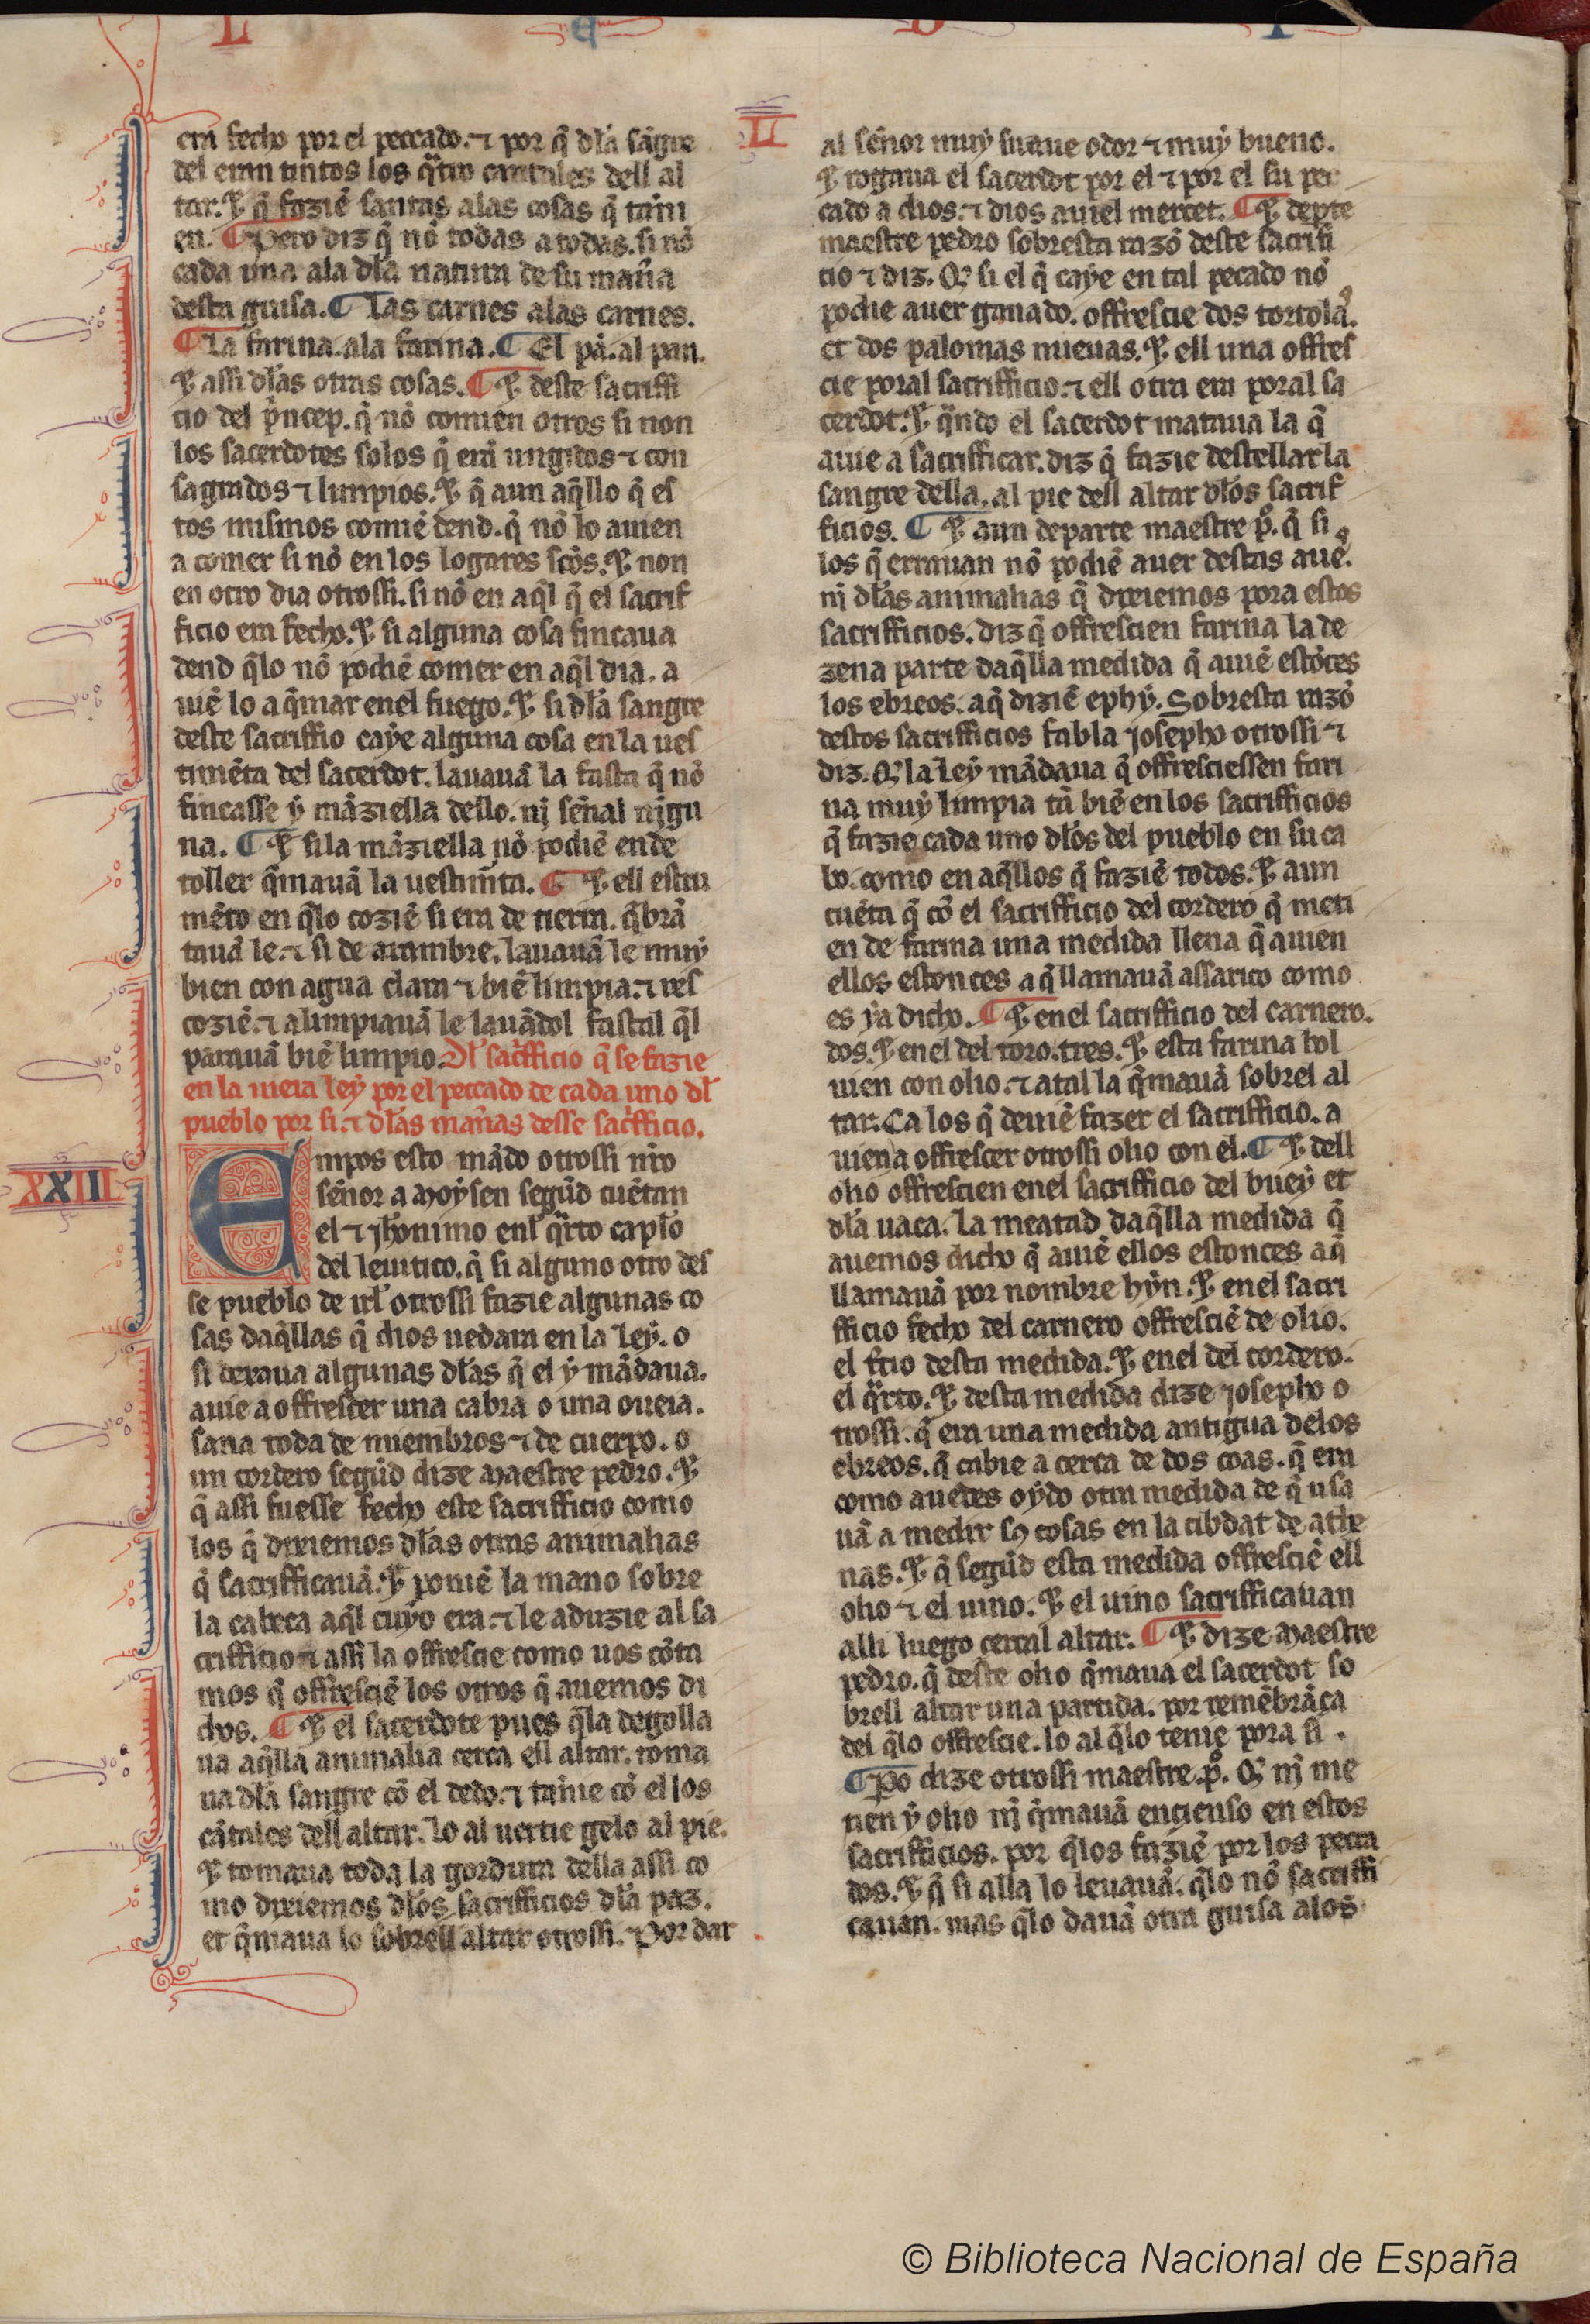 L
era fecho por el peccado. ⁊ por q̃ dła sãgre
del eran tintos los q̃tro cantales dell al
tar. ⁊ q̃ faziẽ santas alas cosas q̃ tanni
en. ¶ Pero diz q̃ nõ todas a todas. si nõ
cada una ala dła natura de su maña
desta guisa. ¶ Las carnes alas carnes.
¶ La farina. ala farina. ¶ El pã. al pan.
⁊ assi dłas otras cosas. ¶ ⁊ deste sacriffi
cio del p̃ncep. q̃ nõ comien otros si non
los sacerdotes solos q̃ erã ungidos ⁊ con
sagrados ⁊ limpios. ⁊ q̃ aun aq̃llo q̃ es
tos mismos comiẽ dend. q̃ nõ lo auien
a comer si nõ en los logares scõs. ⁊ non
en otro dia otrossi. si nõ en aq̃l q̃ el sacrif
ficio era fecho. ⁊ si alguna cosa fincaua
dend q̃lo nõ podiẽ comer en aq̃l dia. a
uiẽ lo a q̃mar enel fuego. ⁊ si dła sangre
deste sacriffio caye alguna cosa en la ues
timẽta del sacerdot. lauauã la fasta q̃ nõ
fincasse y mãziella dello. nj señal njgu
na. ¶ ⁊ si la mãziella nõ podiẽ ende
toller q̃mauã la uestim̃ta. ¶ ⁊ ell estru
mẽto en q̃lo coziẽ si era de tierra. q̃brã
tauã le. ⁊ si de arambre. lauauã le muy
bien con agua clara ⁊ biẽ limpia. ⁊ res
coziẽ. ⁊ alimpiauã le lauãdol fastal q̃l
parauã biẽ limpio. Dł sacrifficio q̃ se fazie
en la uieia ley por el peccado de cada uno dł
pueblo por si. ⁊ dłas mañas desse sacrifficio.
XXIII
Empos esto mãdo otrossi nr̃o
señor a Moysen segũd cuẽtan
el ⁊ jheronimo enł q̃rto capło
del leuitico. q̃ si alguno otro des
se pueblo de irł otrossi fazie algunas co
sas daq̃llas q̃ dios uedara en la Ley. o
si dexaua algunas dłas q̃ el y mãdaua.
auie a offrescer una cabra o una oueia.
sana toda de miembros ⁊ de cuerpo. o
un cordero segũd dize Maestre pedro. ⁊
q̃ assi fuesse fecho este sacrifficio como
los q̃ dixiemos dłas otras animalias
q̃ sacrifficauã. ⁊ poniẽ la mano sobre
la cabeça aq̃l cuyo era. ⁊ le aduzie al sa
crifficio ⁊ assi la offrescie como uos cõta
mos q̃ offresciẽ los otros q̃ auemos di
chos. ¶ ⁊ el sacerdote pues q̃la degolla
ua aq̃lla animalia cerca ell altar. toma
ua dła sangre cõ el dedo. ⁊ tanie cõ el los
cãtales dell altar. Lo al uertie gelo al pie.
⁊ tomaua toda la gordura della assi co
mo dixiemos dłos sacrifficios dła paz.
et q̃maua lo sobrell altar otrossi. Por dar
LI
al señor muy suaue odor ⁊ muy bueno.
⁊ rogaua el sacerdot por el ⁊ por el su pec
cado a dios. ⁊ dios auiel mercet. ¶ ⁊ depte
maestre pedro sobresta razõ deste sacrifi
cio ⁊ diz. Q̃ si el q̃ caye en tal pecado nõ
podie auer ganado. offrescie dos tortolas.
et dos palomas nueuas. ⁊ ell una offres
cie poral sacrifficio. ⁊ ell otra era poral sa
cerdot. ⁊ q̃ndo el sacerdot mataua la q̃
auie a sacrifficar. diz q̃ fazie destellar la
sangre della. al pie dell altar dłos sacrif
ficios. ¶ ⁊ aun departe maestre p̊. q̃ si
los q̃ errauan nõ podiẽ auer destas aues.
nj dłas animalias q̃ dixiemos pora estos
sacrifficios. diz q̃ offrescien farina la de
zena parte daq̃lla medida q̃ auiẽ estõces
los ebreos. aq̃ diziẽ ephy. Sobresta razõ
destos sacrifficios fabla josepho otrossi ⁊
diz. Q̃ la Ley mãdaua q̃ offresciessen fari
na muy limpia tã biẽ en los sacrifficios
q̃ fazie cada uno dłos del pueblo en su ca
bo. como en aq̃llos q̃ faziẽ todos. ⁊ aun
cuẽta q̃ cõ el sacrifficio del cordero q̃ meti
en de farina una medida llena q̃ auien
ellos estonces aq̃ llamauã assarico como
es ya dicho. ¶ ⁊ enel sacrifficio del carnero.
dos. ⁊ enel del toro. tres. ⁊ esta farina bol
uien con olio. ⁊ atal la q̃mauã sobrel al
tar. Ca los q̃ deuiẽ fazer el sacrifficio. a
uien a offrescer otrossi olio con el. ¶ ⁊ dell
olio offrescien enel sacrifficio del buey et
dła uaca. la meatad daq̃lla medida q̃
auemos dicho q̃ auiẽ ellos estonces aq̃
llamauã por nombre hyn. ⁊ enel sacri
fficio fecho del carnero offresciẽ de olio.
el tr̃cio desta medida. ⁊ enel del cordero.
el q̃rto. ⁊ desta medida dize josepho o
trossi. q̃ era una medida antigua delos
ebreos. q̃ cabie a cerca de dos coas. q̃ era
como auedes oydo otra medida de q̃ usa
uã a medir sꝯ cosas en la cibdat de athe
nas. ⁊ q̃ segũd esta medida offresciẽ ell
olio ⁊ el uino. ⁊ el uino sacrifficauan
alli luego cercal altar. ¶ ⁊ dize Maestre
pedro. q̃ deste olio q̃maua el sacerdot so
brell altar una partida. por remẽbrãça
del q̃lo offrescie. lo al q̃lo tenie pora si.
¶ Po dize otrossi maestre. p̊. Q̃ nj me
tien y olio nj q̃mauã encienso en estos
sacrifficios. por q̃los faziẽ por los pecca
dos. ⁊ q̃ si alla lo leuauã. q̃lo nõ sacriffi
cauan. mas q̃lo dauã otra guisa alos
© Biblioteca Nacional de España